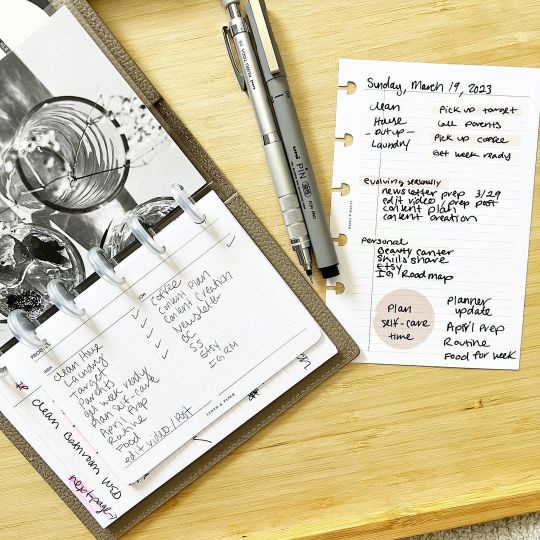 Sunday, March 19, 2023
clean
House
- put up -
Laundry
Pick up target
call parents
Pick up coffee
Get week ready
evolving seasonally
newsletter prep 3/29
edit video / prep post
content plan
content creation
Personal
Beauty Canter
Skills share
Etsy
IG Road map
Plan
self-care
time
Planner
update
April Prep
Routine
Food for week
clean House
Laundry
Target
Parents
get week ready
plan self-care
April Prep
Routine
Food
edit video / Post
LOW
Coffee
content Plan
Content Creation
Newsletter
BC
SS
Etsy
IG RM
HIGH
clean Bathroom WED
next page→
uni
PIN